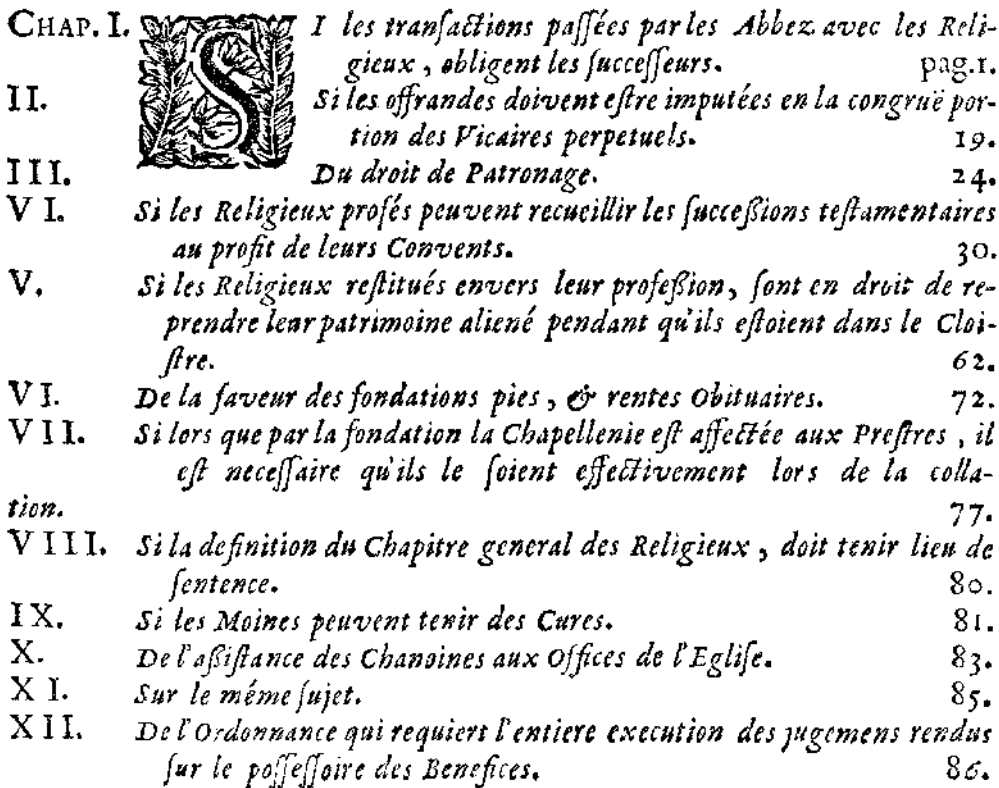 CHAP. I. SI les tranſactions paſſées par les Abbez avec les Reli-
gieux, obligent les ſucceſſeurs. pag.1.
II. Si les offrandes doivent eſtre imputées en la congruë por-
tion des Vicaires perpetuels. 19.
III. Du droit de Patronage. 24.
VI. Si les Religieux profés peuvent recueillir les ſucceßions teſtamentaires
au profit de leurs Convents. 30.
V. Si les Religieux reſtitués envers leur profeßion, ſont en droit de re-
prendre leur patrimoine aliené pendant qu'ils eſtoient dans le Cloi-
ſtre. 62.
VI. De la faveur des fondations pies, & rentes Obituaires. 72.
VII. Si lors que par la fondation la Chapellenie eſt affectée aux Preſtres, il
eſt neceſſaire qu'ils le ſoient effectivement lors de la colla-
tion. 77.
VIII. Si la definition du Chapitre general des Religieux, doit tenir lieu de
ſentence. 80.
IX. Si les Moines peuvent tenir des Cures. 81.
X. De l'aßiſtance des Chanoines aux Offices de l'Egliſe. 83.
XI. Sur le méme ſujet. 85.
XII. De l'Ordonnance qui requiert l'entiere execution des jugemens rendus
ſur le poſſeſſoire des Benefices. 86.